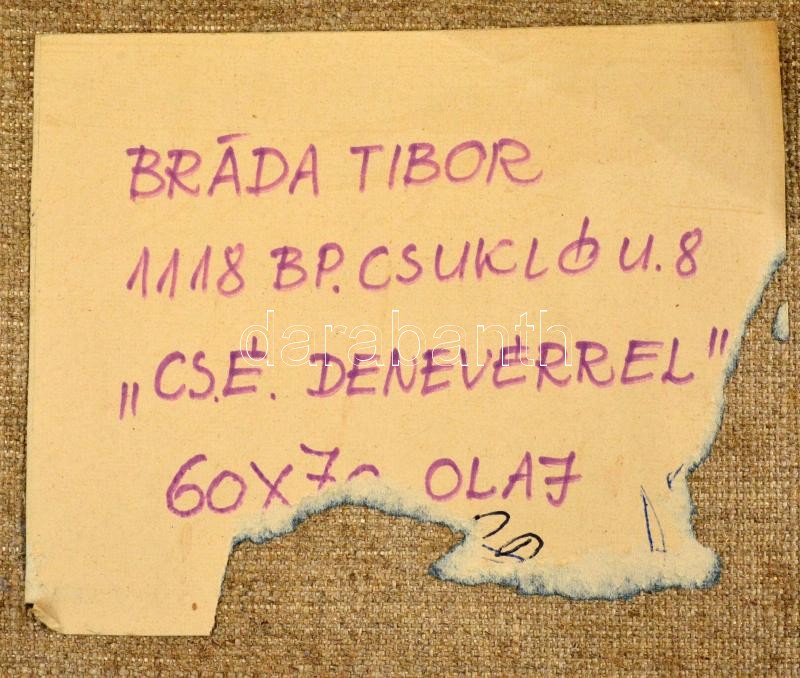 BRÁDA TIBOR
1118 BP. CSUKLÓ U. 8
„CS.É. DENEVÉRREL"
60X70 OLAJ
darabanth